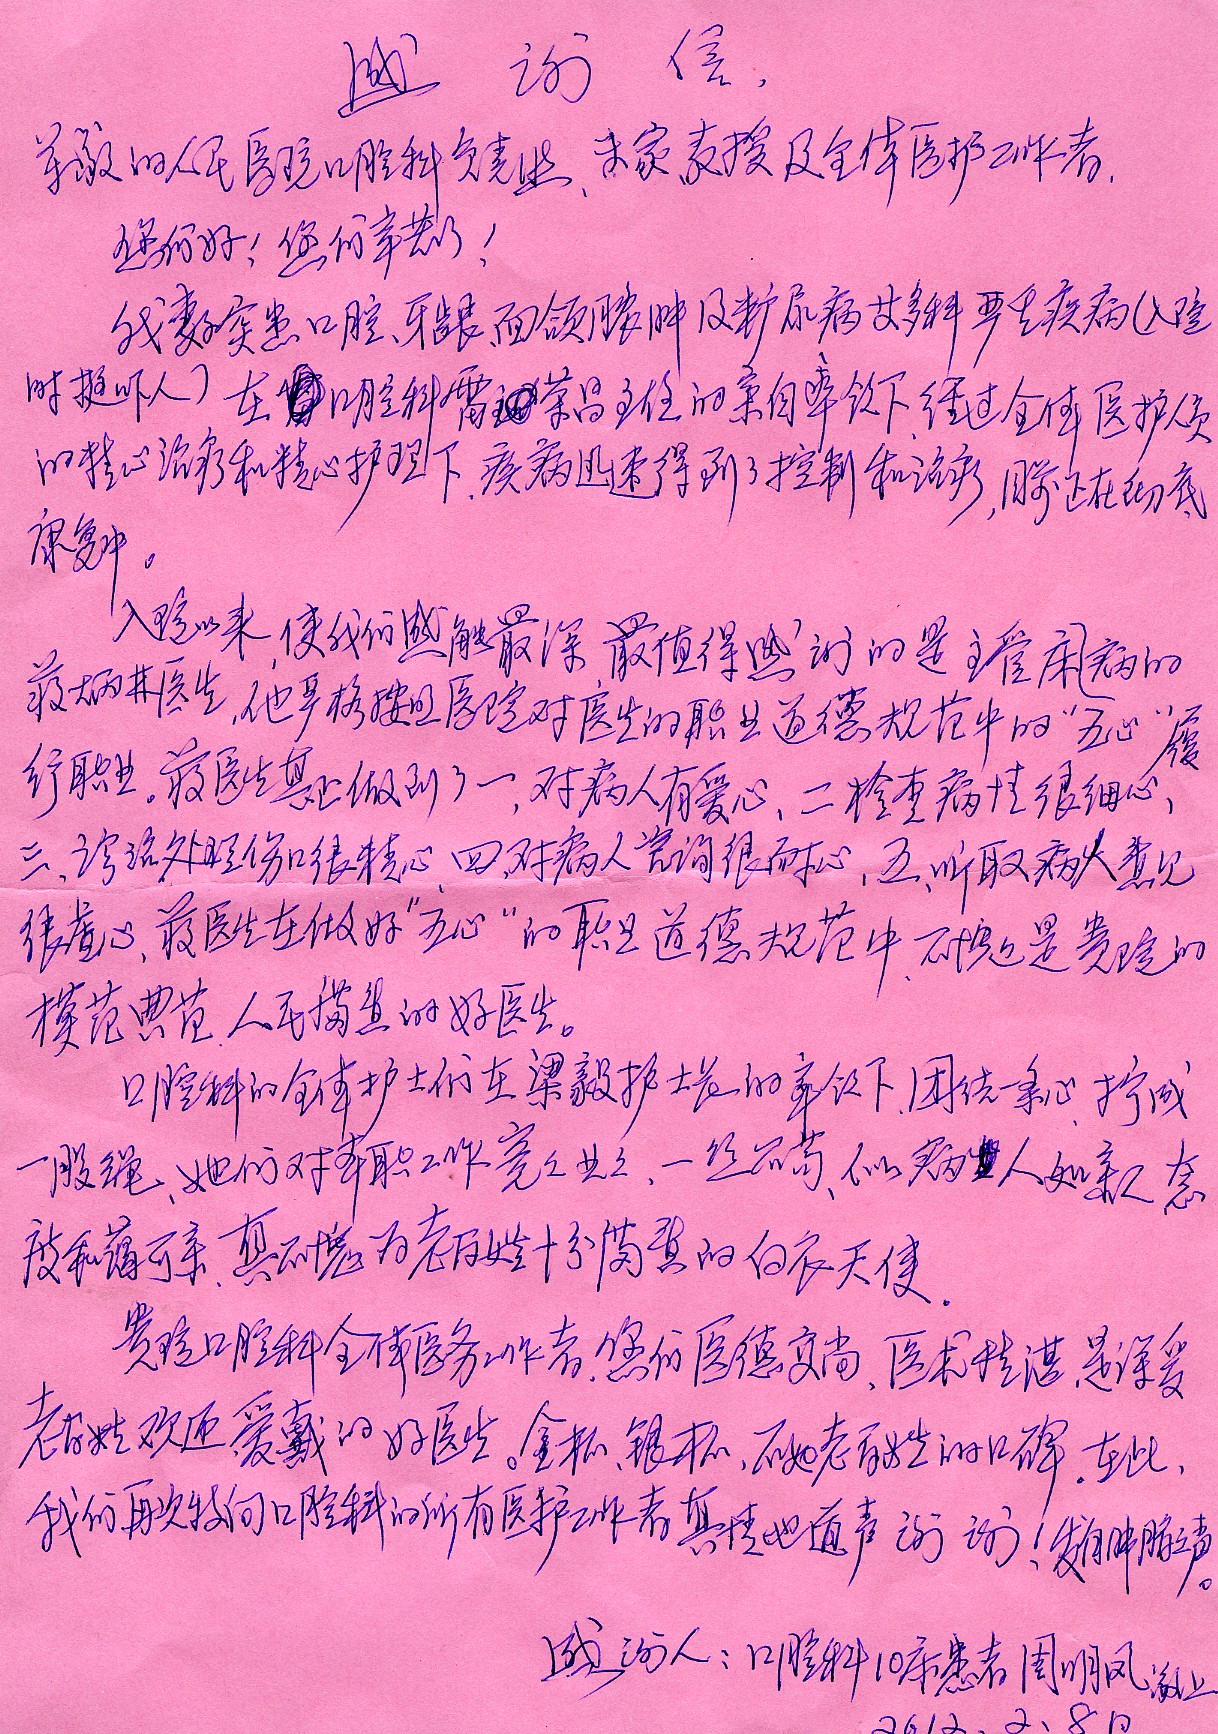 感谢信
尊敬的人民医院口腔科负责些、专家、教授及全体医护工作者.
您们好！您们辛苦了！
我妻子突患口腔、牙龈、面颌脓肿及断尿病廿多科严生疾病(入院
时挺吓人) 在口腔科雷荣昌主任的亲自率领下,经过全体医护人员
的精心治疗和精心护理下,疾病迅速得到了控制和治疗,目前正在彻底
康复中。
入院以来,使我们感触最深,最值得感谢的是主管床病的
蒋炳其医生,他严格按照医院对医生的职业道德规范中的“五心”履
行职业。蒋医生真正做到了一,对病人有爱心、二检查病情很细心、
三、诊治处理伤口很精心,四、对病人咨询很耐心,五、听取病人意见
很虚心、蒋医生在做好“五心”的职业道德规范中,不愧是贵院的
模范典范,人民满意的好医生。
口腔科的全体护士们在梁毅护士长的率领下,团结一条心,拧成
一股绳、她们对本职工作兢兢业业、一丝不苟、似病人如亲人,态
度和蔼可亲,真不愧为老百姓十分满意的白衣天使.
贵院口腔科全体医务工作者,您们医德高尚、医术精湛,是深受
老百姓欢迎爱戴的好医生。金杯、银杯、不如老百姓的口碑.在此,
我们再次特向口腔科的所有医护工作者真情地道声 谢谢！发自肺腑之声。
感谢人：口腔科10床患者周明凤 敬上
2012.2.8日